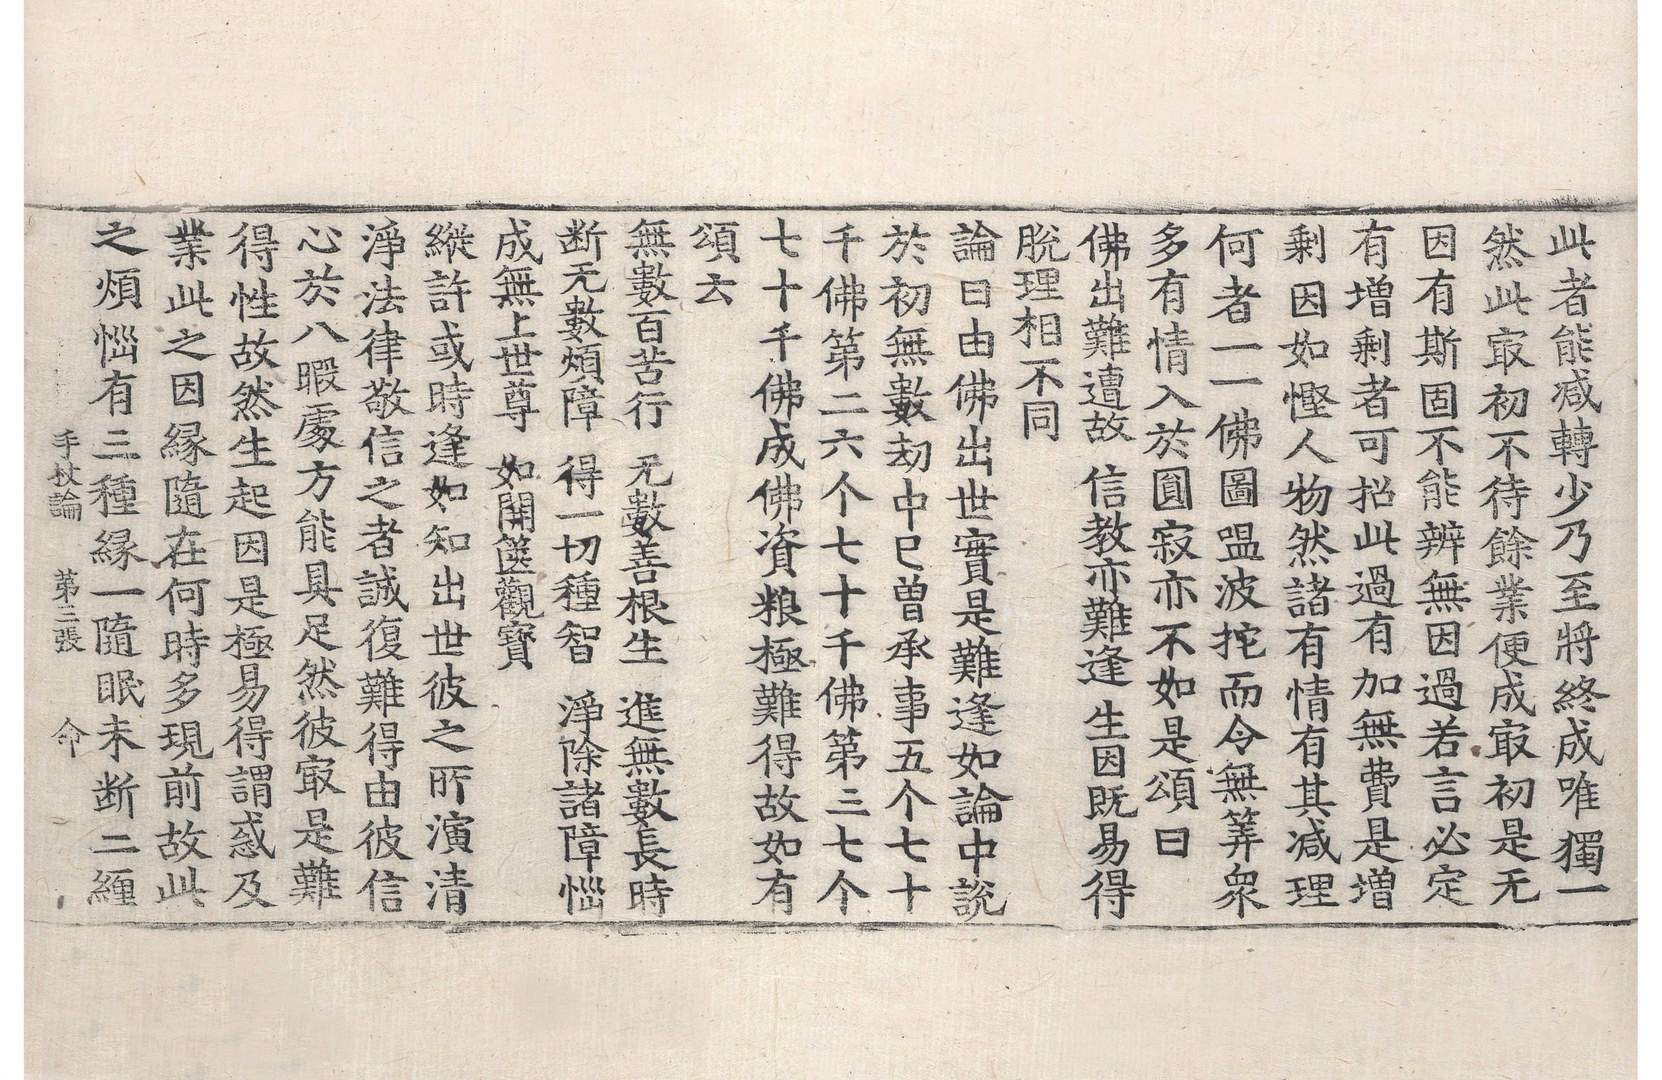 此者能减轉少乃至將終成唯獨一
然此㝡初不待餘業便成㝡初是无
因有斯固不能辨無因過若言必定
有增剩者可招此過有加無費是增
剩因如慳人物然諸有情有其减理
何者一一佛圖嗢波拕而令無筭衆
多有情入於圓寂亦不如是頌曰
佛出難遭故 信教亦難逢 生因既易得
脫理相不同
論曰由佛出世實是難逢如論中說
於初無數劫中已曾承事五个七十
千佛第二六个七十千佛第三七个
七十千佛成佛資粮極難得故如有
頌云
無數百苦行 无數善根生 進無數長時
断无數煩障 得一切種智 淨除諸障惱
成無上世尊 如開篋觀寶
縱許或時逢如知出世彼之所演清
淨法律敬信之者誠復難得由彼信
心於八暇處方能具足然彼㝡是難
得性故然生起因是極易得謂惑及
業此之因緣隨在何時多現前故此
之煩惱有三種緣一隨眠未断二纏
手杖論 第三張 命